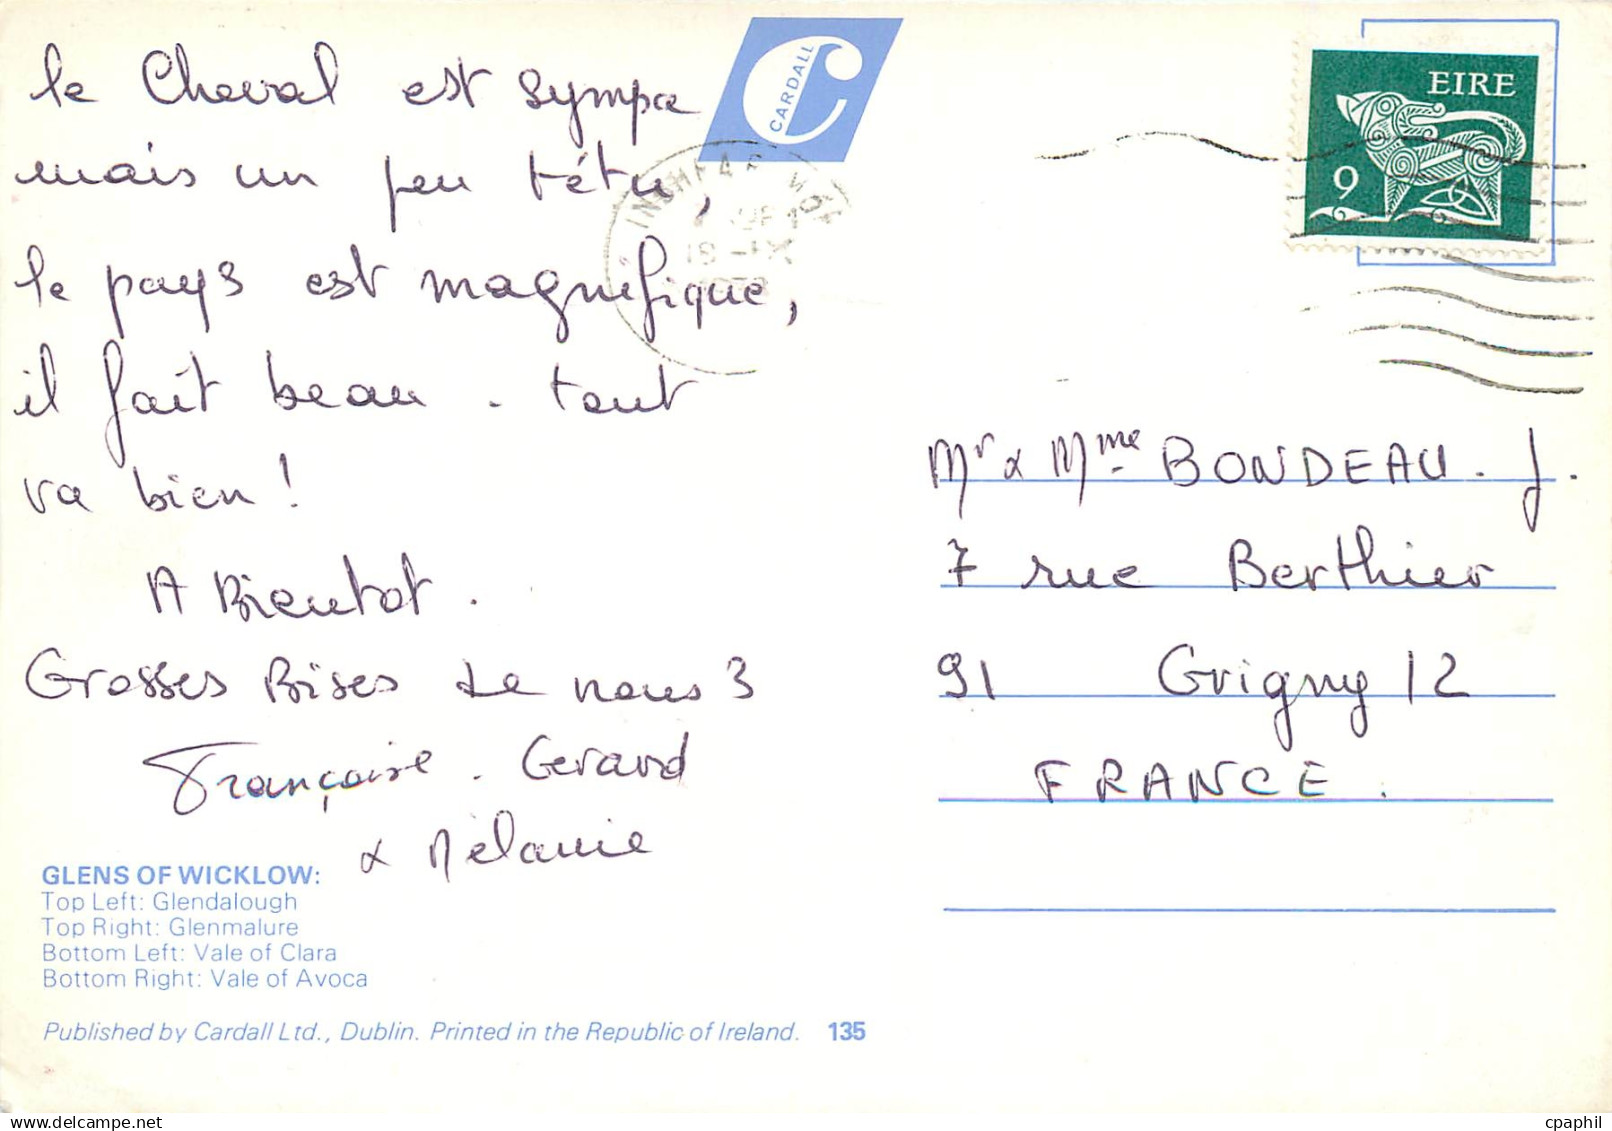 le Cheval est sympa
mais un peu têtu,
le pays est magnifique,
il fait beau. tout
va bien!
A Bientot.
Grosses Bises de nous 3
Françoise. Gerard
& Mélanie
CARDALL
EIRE
9
Mr & Mme BONDEAU. J.
7 rue Berthier
91 Grigny 12
FRANCE.
GLENS OF WICKLOW:
Top Left: Glendalough
Top Right: Glenmalure
Bottom Left: Vale of Clara
Bottom Right: Vale of Avoca
Published by Cardall Ltd., Dublin. Printed in the Republic of Ireland. 135
delcampe.net
cpaphil